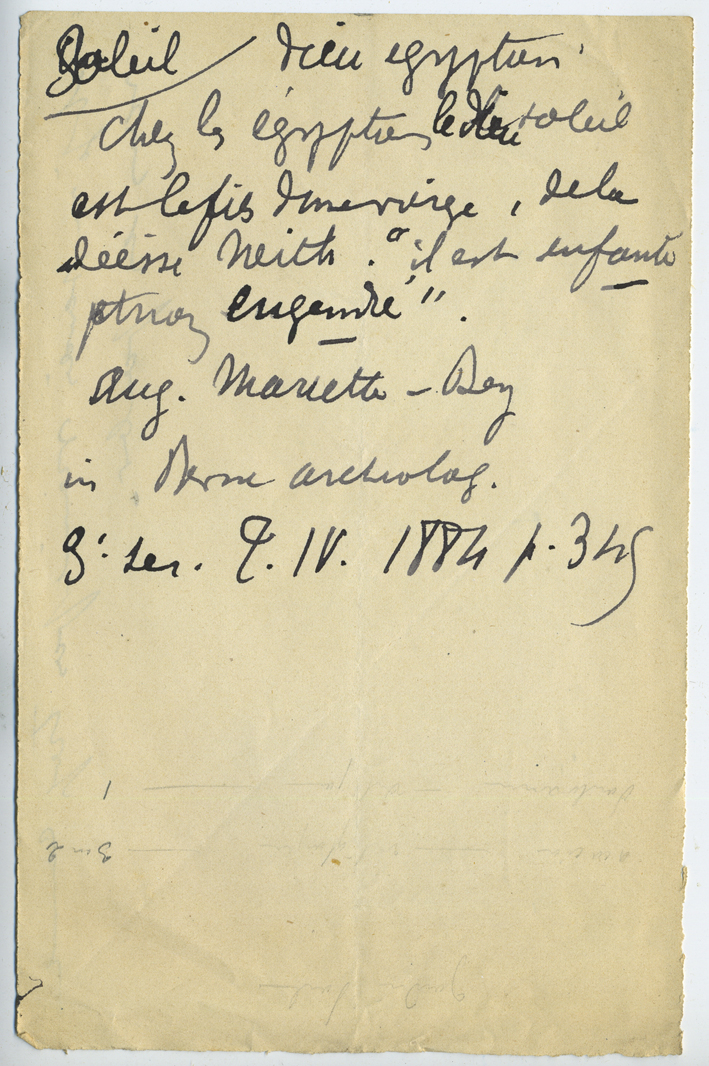 Soleil / Dieu égyptien
Chez les égyptiens le dieu soleil
est le fils d'une vierge, de la
déesse Neith. "il est enfanté
et non engendré".
Aug. Mariette - Bey
in Revue archéolog.
3e ser. T. IV. 1884 p. 345
1